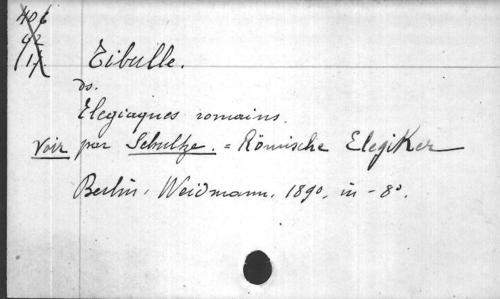 406
Tibulle.
ds.
Elegiaques romains.
Voir par Schultze. = Römische Elegiker
Berlin, Weidmann, 1890, in-8°.